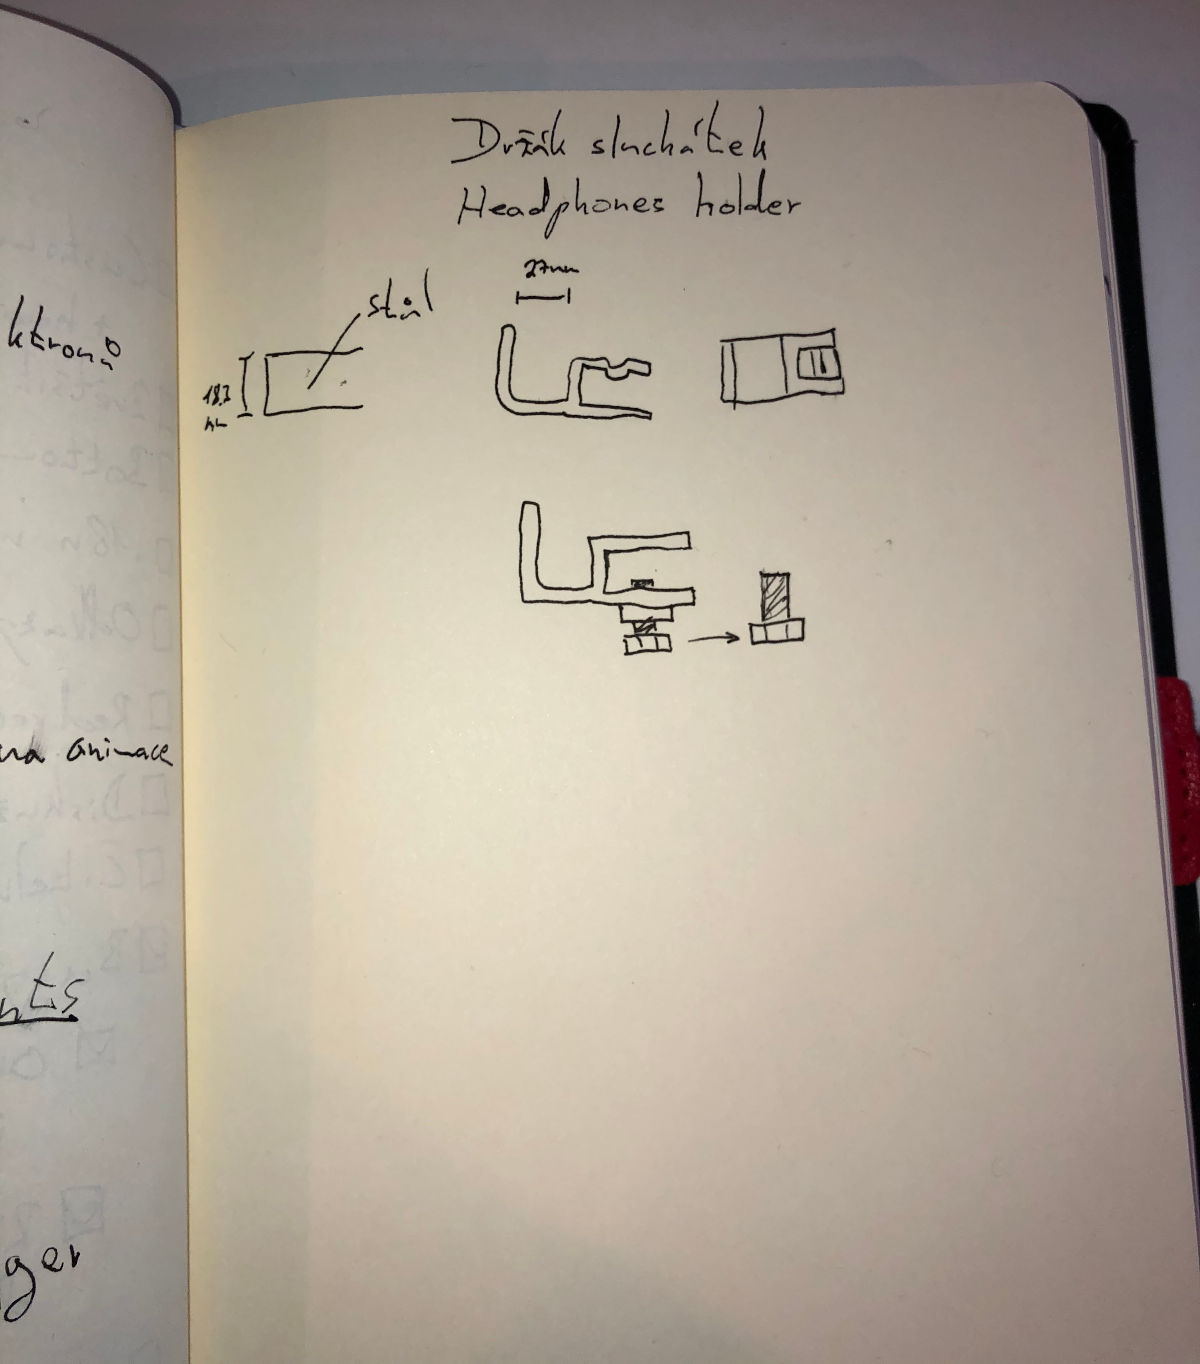 Držák sluchátek
Headphones holder
27mm
stůl
18.3
mm
ktronů
animace
nts
ger